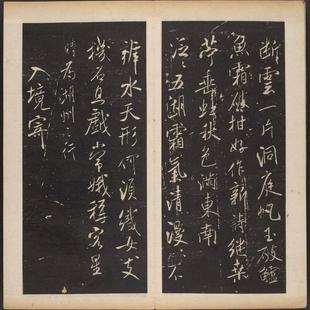 断雲一片洞庭帆玉破鱸
魚霜破柑好作新詩継桑
苧垂虹秋色滿東南
泛〻五湖霜氣清漫〻不
辨水天形何須織女支
機石且戲常娥稱客星
時為湖州之行
入境寄